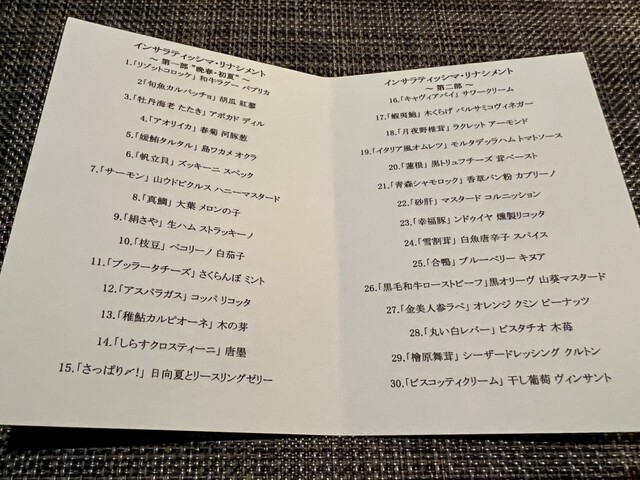 インサラティッシマ・リナシメント
～ 第一部 “晩春・初夏” ～
1.「リゾットコロッケ」和牛ラグー パプリカ
2.「旬魚カルパッチョ」胡瓜 紅蓼
3.「牡丹海老 たたき」アボカド ディル
4.「アオリイカ」春菊 河豚葱
5.「媛鮪タルタル」島ワカメ オクラ
6.「帆立貝」ズッキーニ スペック
7.「サーモン」山ウドピクルス ハニーマスタード
8.「真鯛」大葉 メロンの子
9.「絹さや」生ハム ストラッキーノ
10.「枝豆」ペコリーノ 白茄子
11.「ブッラータチーズ」さくらんぼ ミント
12.「アスパラガス」コッパ リコッタ
13.「稚鮎カルピオーネ」木の芽
14.「しらすクロスティーニ」唐墨
15.「さっぱり〆!」日向夏とリースリングゼリー
インサラティッシマ・リナシメント
～ 第二部 ～
16.「キャヴィアパイ」サワークリーム
17.「蝦夷鮑」木くらげ バルサミコヴィネガー
18.「月夜野椎茸」ラクレット アーモンド
19.「イタリア風オムレツ」モルタデッラハム トマトソース
20.「蓮根」黒トリュフチーズ 茸ペースト
21.「青森シャモロック」香草パン粉 カプリーノ
22.「砂肝」マスタード コルニッション
23.「幸福豚」ンドゥイヤ 燻製リコッタ
24.「雪割茸」白魚唐辛子 スパイス
25.「合鴨」ブルーベリー キヌア
26.「黒毛和牛ローストビーフ」黒オリーヴ 山葵マスタード
27.「金美人参ラペ」オレンジ クミン ピーナッツ
28.「丸い白レバー」ピスタチオ 木苺
29.「檜原舞茸」シーザードレッシング クルトン
30.「ビスコッティクリーム」干し葡萄 ヴィンサント